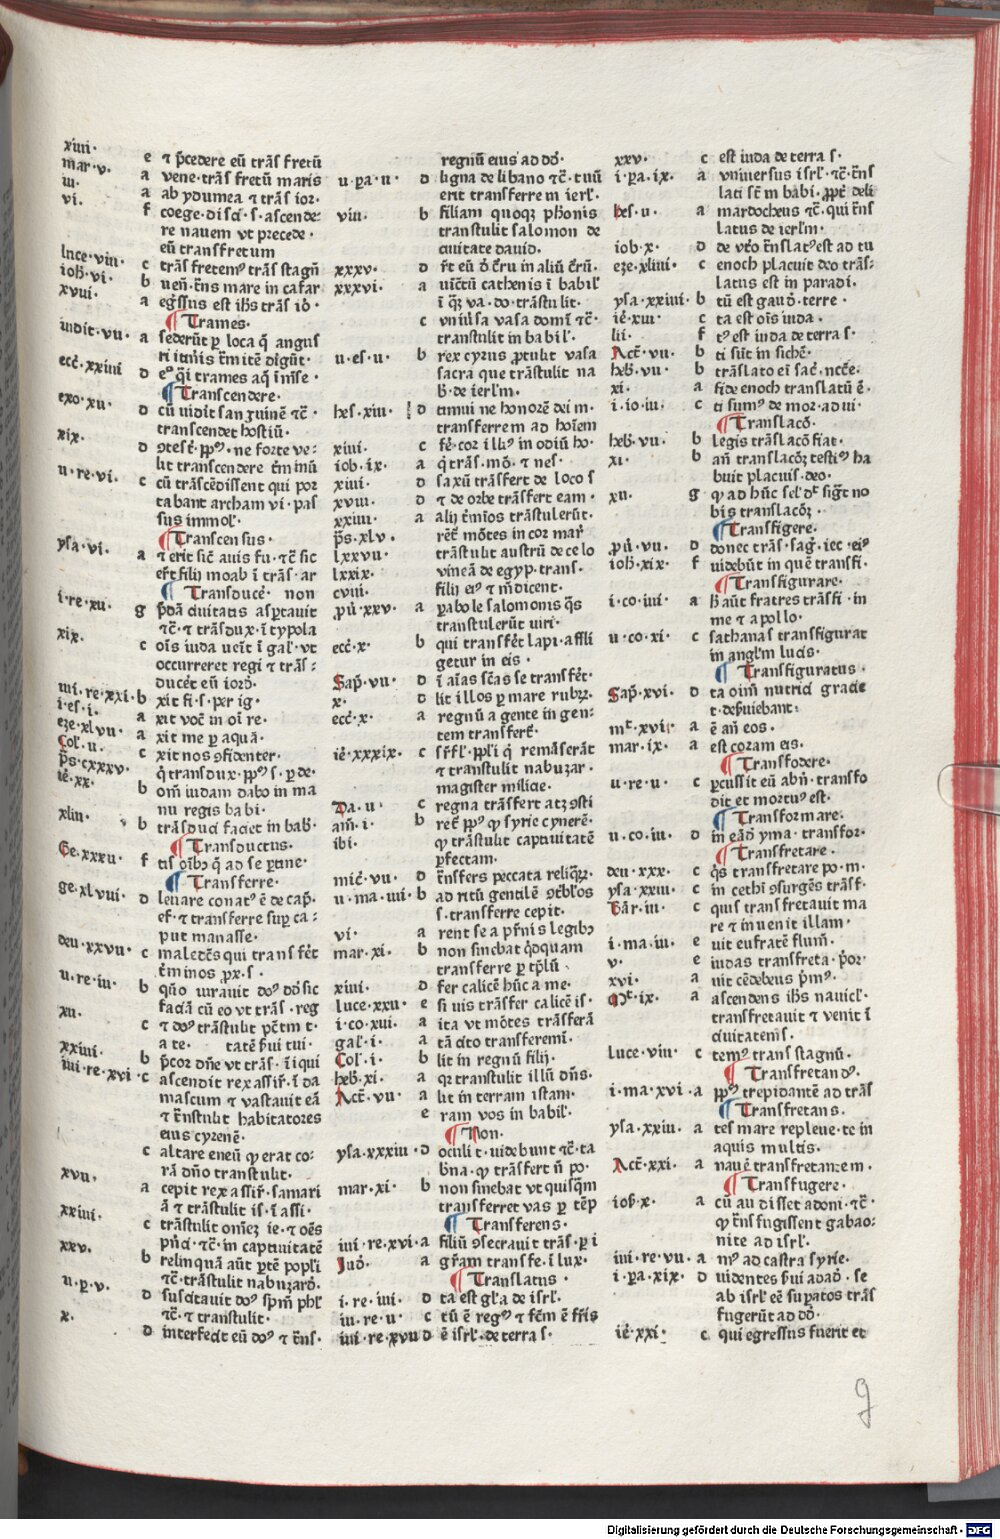 xiiii· e ⁊ p̃cedere eũ trãs fretũ
mar·v· a vene·trãs fretũ maris
iii· a ab ydumea ⁊ trãs ior·
vi· f coege·disci·s·ascende⸗
re nauem vt precede·
eũ transfretum
luce·viii· c trãs fretemꝰ trãs stagñ
ioh̃·vi· b ueñ·t̃ns mare in cafar
xviii· a eg̃ssus est ih̃s trãs io·
¶ Trames·
iudit·vii· a sederũt ꝑ loca q̃ angus
ri itin̄is t̃mitẽ digũt·
ecc̃·xxiiii d eꝰ q̃i trames aq̃ ĩmẽse·
¶ Transcendere·
exo·xii· d cũ uidit sanguinẽ ⁊c̃·
transcendet hostiũ·
xix· d ꝯtest̃·pp̃s·ne forte ve⸗
lit transcendere t̃minũ
ii·re·vi· c cũ trãscẽdissent qui por
tabant archam vi·pas
sus immol̃·
¶ Transcensus·
ysa·vi· a ⁊ erit sic̃ auis fu·⁊c̃ sic
er̃t filij moab ĩ trãs·ar
¶ Transducẽ· non
i·re·xii· g
⁊c̃·⁊ trãsdux·ĩ typola
xix· c oĩs iuda ueĩt ĩ gal̃·vt
occurreret regi ⁊ trãs⸗
ducẽt eũ iord̃·
iiii·re·xxi· b xit fi·s·per ig·
i·es·i· a xit voc̃ in oĩ re·
eze·xlvii· a xit me ꝑ aquã·
Col̃·ii· c xit nos ꝯfidenter·
p̃s·cxxxv· q̃ transdux·pp̃m s·ꝑ de·
ie·xx· b om̃ iudam dabo in ma
nu regis babi·
xliii· b trãsduci faciet in bab̃·
¶ Transductus·
Ge·xxxii· f
¶ Transferre·
ge·xlviii· d leuare conatꝰ ẽ de cap̃·
ef·⁊ transferre sup̃ ca⸗
put manasse·
deu·xxvii· c maledc̃s qui transfẽt
t̃minos ꝓx·s·
ii·re·iii· b quo iurauit doꝰ dd̃ sic
faciã cũ eo vt trãs·reg
xii· c ⁊ doꝰ trãstulit pc̃tm t·
a te· tatẽ s̃ui tui·
xxiiii· b p̃cor dñe vt trãs·ĩiqui
iiii·re·xvi· c ascendit rex assir̃·ĩ da
mascum ⁊ vastauit eã
⁊ t̃nstulit habitatores
eius cyrenẽ·
c altare eneũ qꝫ erat co⸗
rã dño transtulit·
xvii· a cepit rex assir̃·samari
ã ⁊ trãstulit is·ĩ assi·
xxiiii· c trãstulit om̃ez ie·⁊ oẽs
⁊c̃·in captiuitatẽ
xxv· b relinquã aũt ꝑtẽ popl̃i
⁊c̃·trãstulit nabuzard̃·
ii·p·v· d suscitauit doꝰ sp̃m phl̃
⁊c̃·⁊ transtulit·
x· d interfecit eũ doꝰ ⁊ t̃ns·
regnũ eius ad dd̃·
ii·pa·ii· d ligna de libano ⁊c̃·tuũ
erit transferre m ierl̃·
viii· b filiam quoqꝫ phonis
transtulit salomon de
ciuitate dauid·
xxxv· d r̃t eũ d̃ c̃ru in aliũ c̃rũ·
xxxvi· a uĩctũ cathenis ĩ babil̃
ĩ q̃z va·do·trãstulit·
c vniũsa vasa domĩ ⁊c̃·
transtulit in babil̃·
ii·es·ii· b rex cyrus ꝓtulit vasa
sacra que trãstulit na
b̃·de ierl̃m·
hes·xiii· d timui ne honorẽ dei m·
transferrem ad hoĩem
xiiii· c fẽ·cor illꝰ in odiũ ho·
iob·ix· a q̃ trãs·mõ·⁊ nes·
xiiii· d saxũ trãsfert de loco s
xviii· d ⁊ de orbe trãsfert eam·
xxiiii· a alij t̃mĩos trãstulerũt·
p̃s·xlv· rẽt̃ mõtes in cor mar̃
lxxvii· trãstulit austrũ de celo
lxxix· vineã de egyp·trans·
cviii· filij eiꝰ ⁊ m̃dicent·
ꝓũ·xxv· a ꝑabole salomonis q̃s
transtulerũt uiri·
ecc̃·x· b qui transfẽt lapi·affli
getur in eis·
Sap̃·vii· d ĩ aĩas sc̃as se transfẽt·
x· d lit illos ꝑ mare rubꝝ·
ecc̃·x· a regnũ a gente in gen⸗
tem transfert̃·
iẽ·xxxix· c s̃rl̃·ppl̃i q̃ remãserãt
⁊ transtulit nabuzar·
magister milicie·
Da·ii· c regna trãsfert atqꝫ ꝯsti
am̃·i· b
ibi· qꝫ trãstulit captiuitatẽ
ꝑfectam·
mic̃·vii· d t̃nsfers peccata reliqꝝ·
ii·ma·iiii· b ad ritũ gentilẽ ꝯtbl̃os
s·transferre cepit·
vi· a rent se a pr̃nis legibꝰ
mar·xi· b non sinebat q̃dquam
transferre ꝑ tp̃lũ·
xiiii· d fer calicẽ hũc a me·
luce·xxii· e si uis trãsfer calicẽ is·
i·co·xiii· a ita vt mõtes trãsferã
gal̃·i· a tã cito transferemĩ·
Col̃·i· b lit in regnũ filij·
heb̃·xi· a qꝛ transtulit illũ dñs·
Act̃·vii· a lit in terram istam·
e ram vos in babil̃·
¶ Non·
ysa·xxxiii· d oculi t·uidebunt ⁊c̃·ta
bna·qꝫ trãsfert ñ po·
mar·xi· b non sinebat vt quisq̃m
transferret vas ꝑ tẽp
¶ Transferens·
iiii·re·xvi· a filiũ ꝯsecrauit trãs·ꝑ i
Jud̃· a gr̃am transfe·ĩ lux·
¶ Translatus·
i·re·iiii· d ta est gl̃a de isrl̃·
iii·re·ii· c tũ ẽ regꝰ ⁊ fc̃m ẽ fr̃is
iiii·re·xvii d ẽ isrl̃·de terra s·
xxv· c est iuda de terra s·
i·pa·ix· a vniuersus isrl̃·⁊c̃·t̃ns
lati st̃ m babi·ꝓpt̃ deli
hes·ii· a mardocheus ⁊c̃·qui t̃ns
latus de ierl̃m·
iob·x· d de vtr̃o t̃nslatꝰ est ad tu
eze·xliiii· c enoch placuit deo trãs⸗
latus est in paradi·
ysa·xxiiii· b tũ est gaud̃·terre·
iẽ·xiii· c ta est oĩs iuda·
lii· f tꝰ est iuda de terra s·
Act̃·vii· b ti sũt in sichẽ·
heb̃·vii· b trãslato eĩ sac̃·nc̃ce·
xi· a fide enoch translatũ ẽ·
i·io·iii· c ti sumꝰ de mor·ad ui·
¶ Translacõ·
heb̃·vii· b legis trãslacõ fiat·
xi· b añ translacõꝫ testiꝰ ha
buit placuis·deo·
xii· g qꝫ ad hũc sel̃ dt̃ sigt̃ no
bis translacõꝫ·
¶ Transfigere·
ꝓũ·vii· d donec trãs·sag̃·iec·eiꝰ
ioh̃·xix· f uidebũt in quẽ transfi·
¶ Transfigurare·
i·co·iiii· a h̃ aũt fratres trãsfi·in
me ⁊ apollo·
ii·co·xi· c sathanas transfigurat
in angl̃m lucis·
¶ Transfiguratus·
Sap̃·xvi· d ta oim̃ nutrici gracie
t·des̃uiebant·
mt̃·xvii· a ẽ añ eos·
mar·ix· a est coram eis·
¶ Transfodere·
ii·re·ii· c ꝑcussit eũ abñ·transfo
dit et mortuꝰ est·
¶ Transformare·
ii·co·iii· d in eãd̃ yma·transfor·
¶ Transfretare·
deu·xxx· c q̃s transfretare po·m·
ysa·xxiii· c in cethĩ ꝯsurgẽs trãsf·
Bar̃·iii· c quis transfretauit ma
re ⁊ inuenit illam·
i·ma·iii· e uit eufratẽ flum̃·
v· e iudas transfreta·p̃or·
xvi· a uit cẽdebeus p̃mꝰ·
Mt̃·ix· a ascendens ih̃s nauicl̃·
transfretauit ⁊ venit ĩ
ciuitatem s·
luce·viii· c temꝰ trans stagnũ·
¶ Transfretandꝰ·
i·ma·xvi· a pp̃m trepidantẽ ad trãs
¶ Transfretans·
ysa·xxiii· a tes mare repleue·te in
aquis multis·
Act̃·xxi· a nauẽ transfretantem·
¶ Transfugere·
iob·x· a cũ audisset adoni·⁊c̃·
qꝫ t̃nsfugissent gabao⸗
nite ad isrl̃·
iiii·re·vii· a mꝰ ad castra syrie·
i·pa·xix· d uidentes s̃ui adad̃·se
ab isrl̃ eẽ supatos trãs
fugerũt ad dd̃·
iẽ·xxi· c qui egressus fuerit et
g
Digitalisierung gefördert durch die Deutsche Forschungsgemeinschaft - DFG